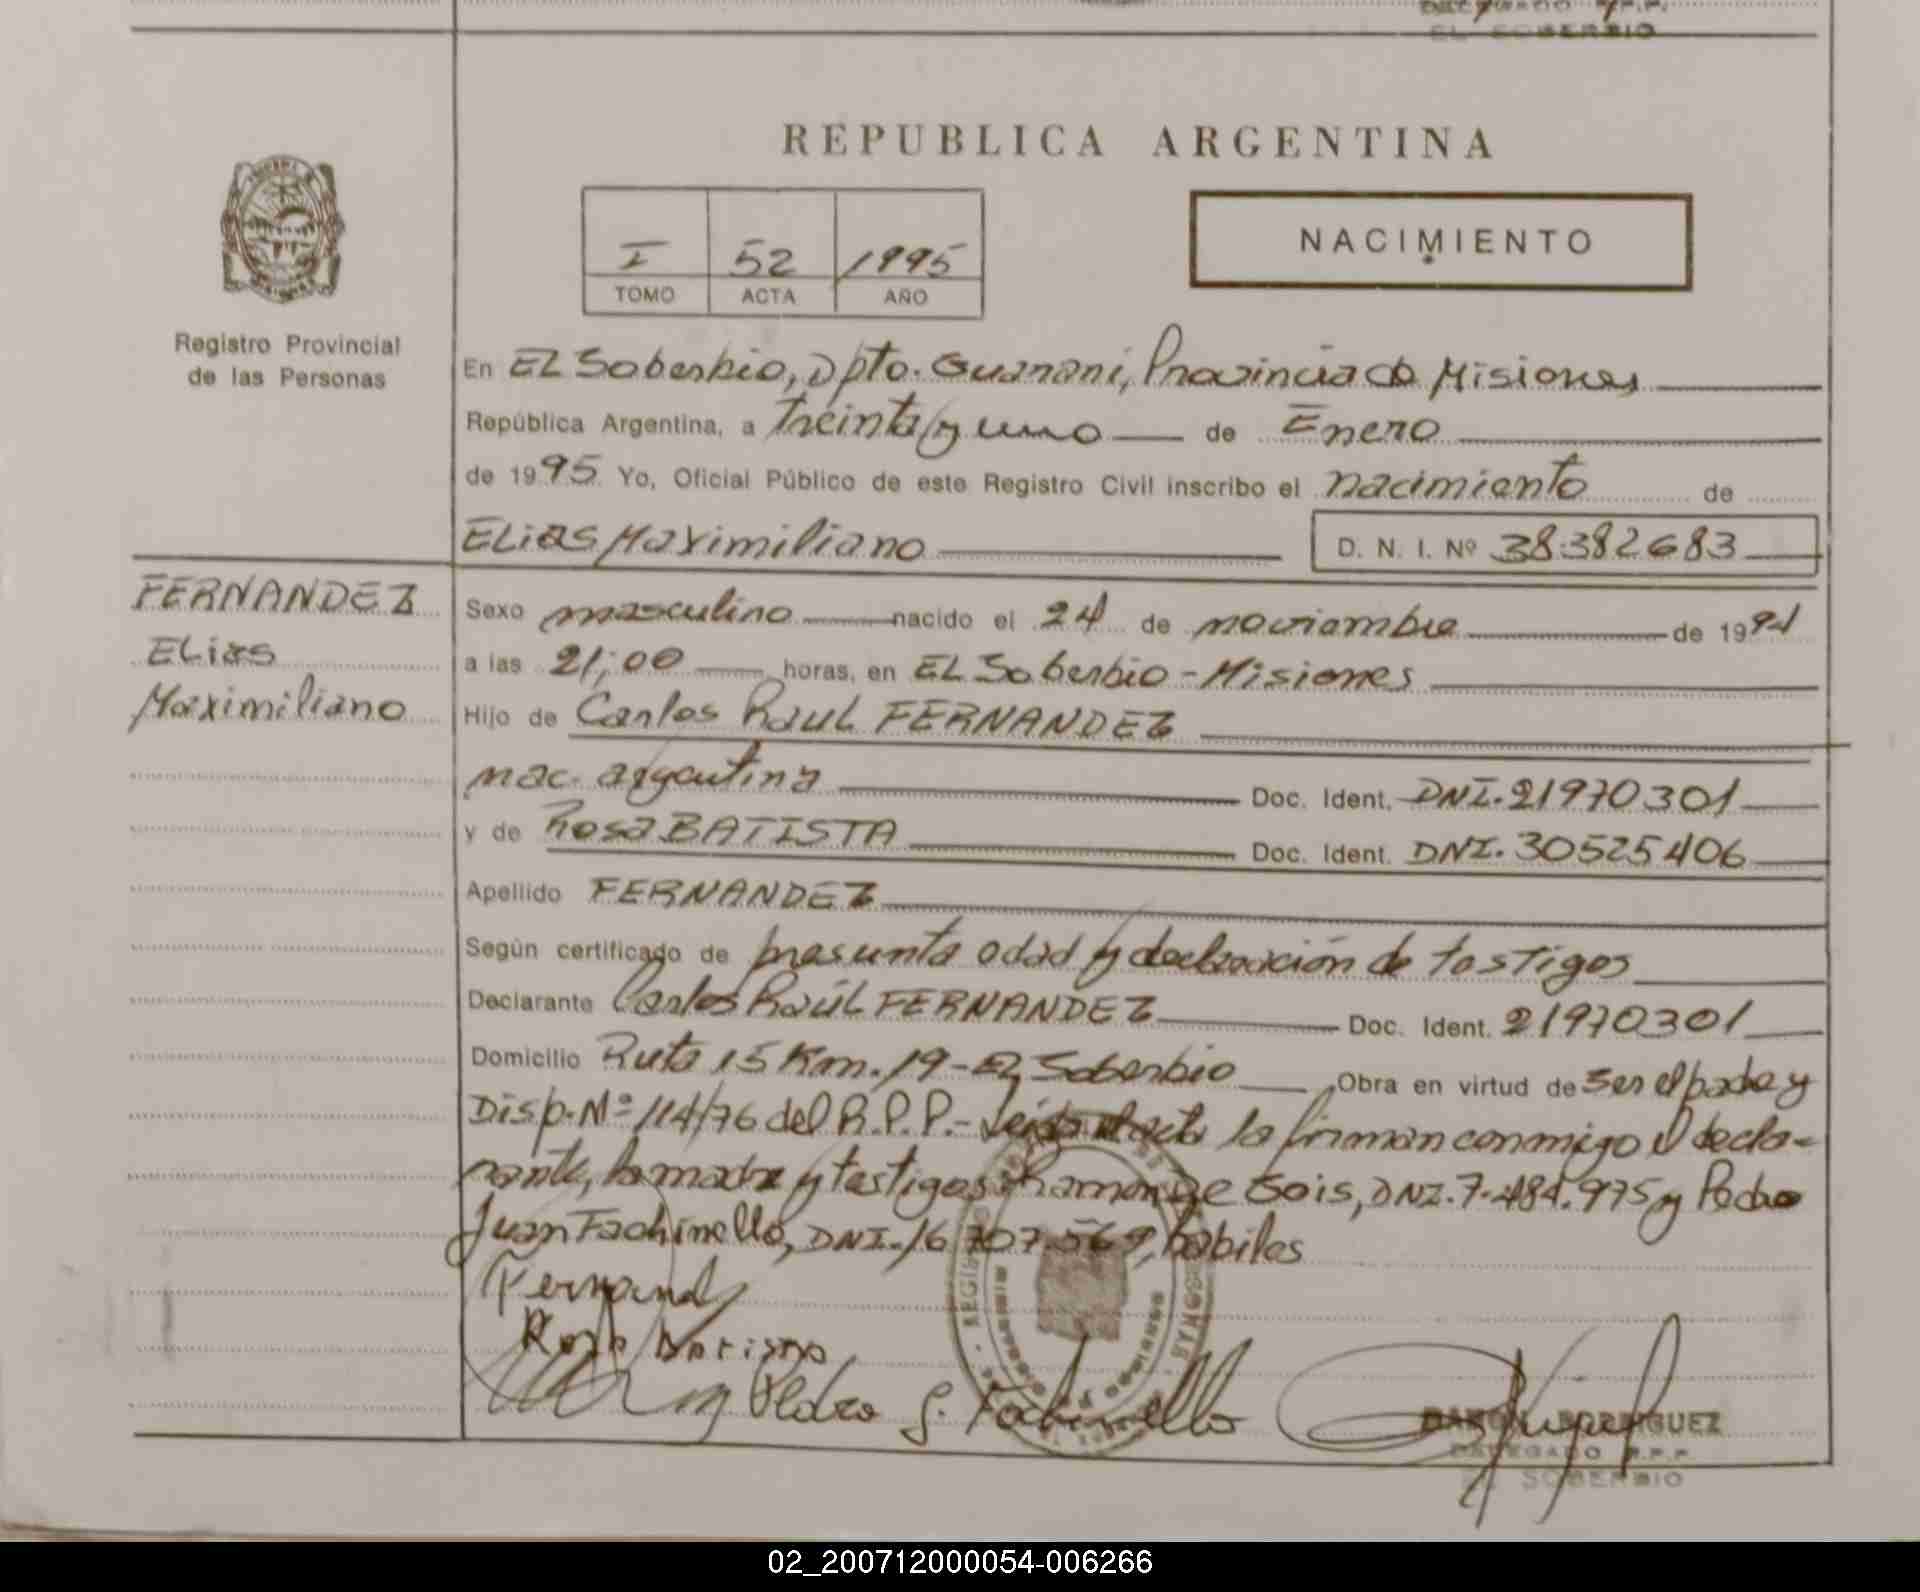 EL SOBERBIO
REPUBLICA ARGENTINA
I 52 1995
TOMO ACTA AÑO
NACIMIENTO
Registro Provincial
de las Personas
En EL Soberbio, Dpto. Guarani, Provincia de Misiones
República Argentina, a treinta y uno de Enero
de 1995 Yo, Oficial Público de este Registro Civil inscribo el nacimiento de
ELias Maximiliano D. N. I. Nº 38.382683
FERNANDEZ
ELias
Maximiliano
Sexo masculino nacido el 24 de noviembre de 1994
a las 21;00 horas, en EL Soberbio - Misiones
Hijo de Carlos Raul FERNANDEZ
nac. argentina Doc. Ident. DNI. 21970301
y de Rosa BATISTA Doc. Ident. DNI. 30525406
Apellido FERNANDEZ
Según certificado de presunta edad y declaración de testigos
Declarante Carlos Raúl FERNANDEZ Doc. Ident. 21970301
Domicilio Ruta 15 Km. 19 - EL Soberbio Obra en virtud de ser el padre y
Disp. Nº 114/76 del R.P.P.- Leida el acta la firman conmigo el decla-
rante, la madre y testigos Ramon De Gois, DNI. 7.484.975 y Pedro
Juan Fachinello, DNI. 16.707.569, habiles
Fernand
Rosa Batista
Pedro J. Fachinello
RAMON RODRIGUEZ
DELEGADO R.P.P.
EL SOBERBIO
02_200712000054-006266